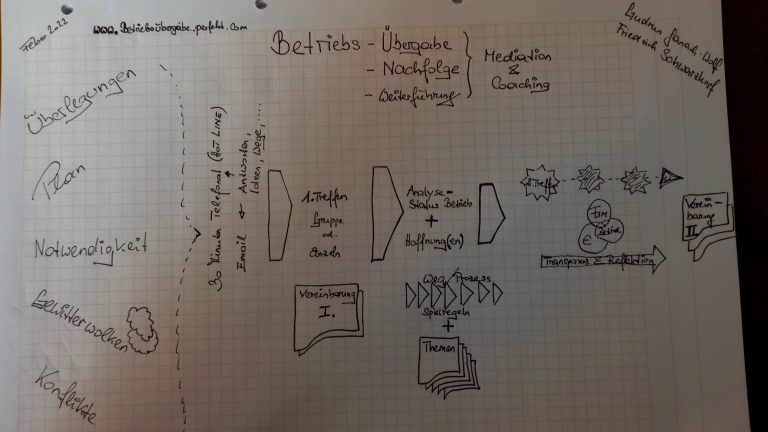 Feber 2022
www.Betriebsübergabe.perfekt.com
Betriebs - Übergabe
- Nachfolge
- Weiterführung
Mediation
&
Coaching
Friedrich Schwarzkopf
Überlegungen
Plan
Notwendigkeit
Gewitterwolken
Konflikte
30 Minuten Telefonat (HOT LINE)
Email & Antworten,
Ideen, Wege, ....
1. Treffen
Gruppe
od.
Einzeln
Vereinbarung
I.
Analyse -
Status Betrieb
+
Hoffnung(en)
Weg / Prozess
Spielregeln
+
Themen
2. Treff.
€
Transparenz & Reflektion
Verein-
barung
II